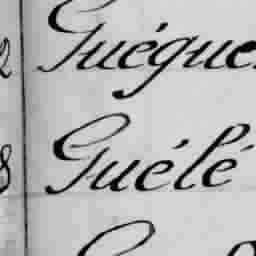 Guégue
Guélé